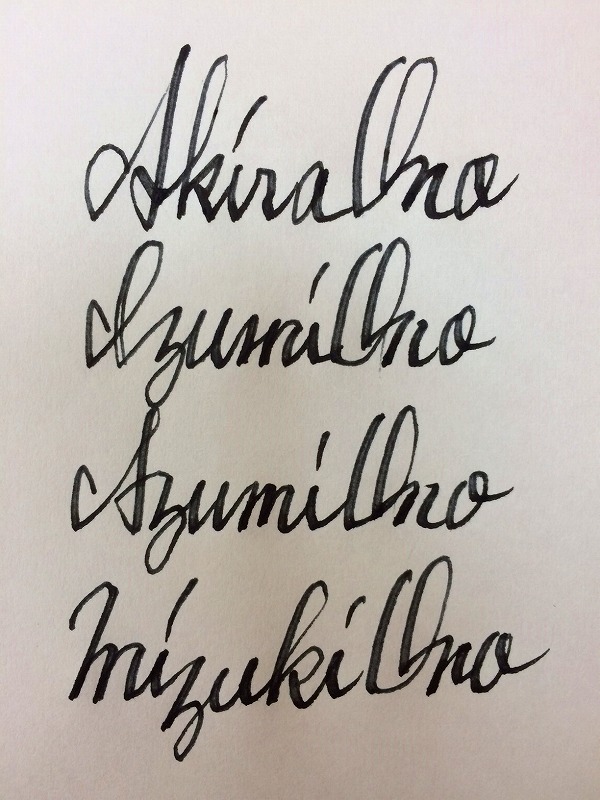 Akira Ono
Izumi Ono
Azumi Ono
Mizuki Ono